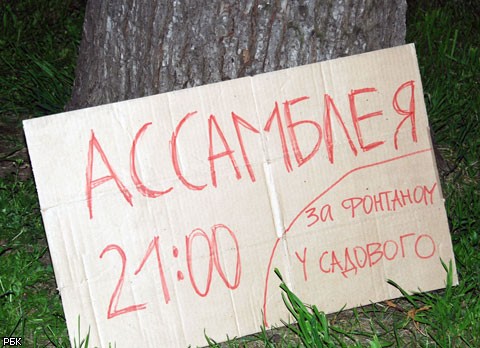 АССАМБЛЕЯ
21:00
за ФОНТАНОМ
У САДОВОГО
РБК